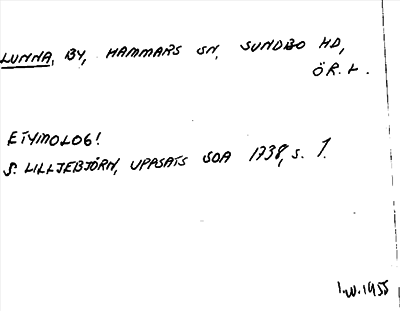 LUNNA, BY, HAMMARS SN, SUNDBO HD,
ÖR. L.
ETYMOLOG!
S. LILLJEBJÖRN, UPPSATS SOA 1738, s. 1.
1.1955